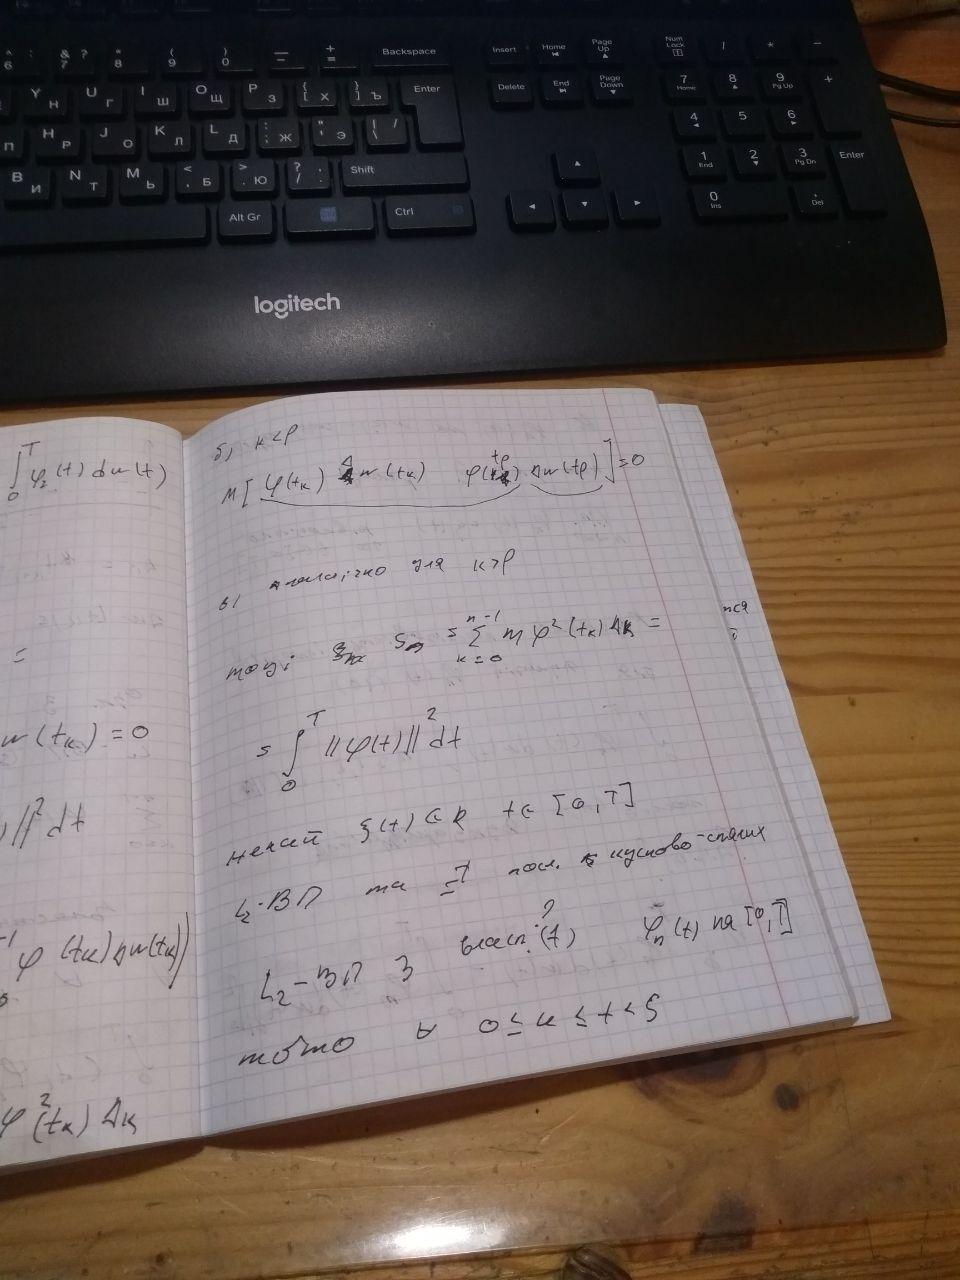 6 7 8 9 0 — + = Backspace Insert Home Page Up Num Lock / * -
Y Н U Г I Ш O Щ P З { [ Х } ] Ъ Enter Delete End Page Down 7 Home 8 9 Pg Up +
П H Р J О K Л L Д : ; Ж " ' Э \ / 4 5 6
В И N Т M Ь < , Б > . Ю ? / Shift 1 End 2 3 Pg Dn Enter
Alt Gr Ctrl 0 Ins . Del
logitech
∫₀ᵀ φ₂(t) dw(t)
=
w(tₖ) = 0
)||² dt
φ(tₖ) Δw(tₖ)
φ²(tₖ) Δₖ
б) к < p
M[φ(tₖ) Δw(tₖ) φ(tp) Δw(tp)] = 0
в) аналогічно для к > p
тоді S = ∑ₖ₌₀ⁿ⁻¹ M φ²(tₖ) Δₖ =
= ∫₀ᵀ ||φ(t)||² dt
нехай ξ(t) ∈ R t ∈ [0, T]
L₂-ВП та ∃ посл. кусково-сталих
L₂-ВП з власт.(?) φₙ(t) на [0, T]
тобто ∀ 0 ≤ u ≤ t < s
ься